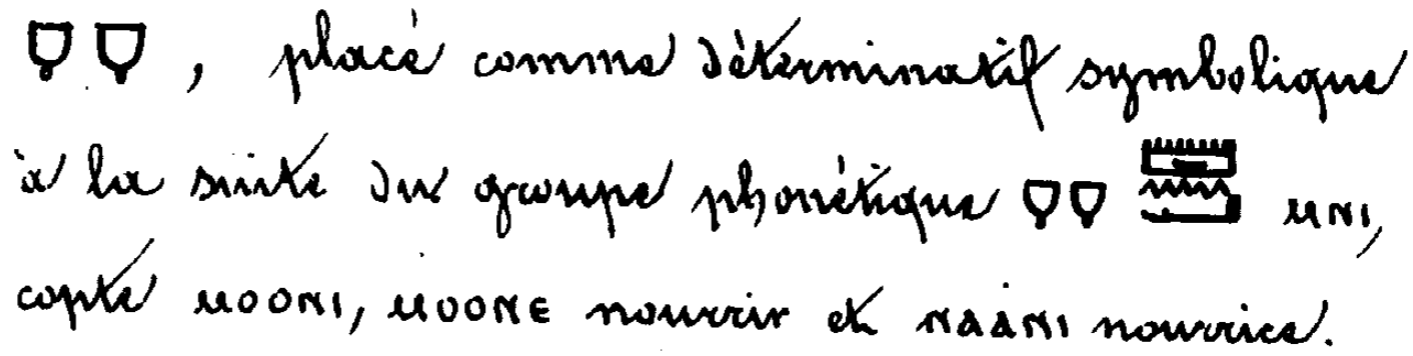 , placé comme déterminatif symbolique
à la suite du groupe phonétique 𓏠𓈖 ⲙⲛⲓ,
copte ⲙⲟⲟⲛⲓ, ⲙⲟⲟⲛⲉ nourrir et ⲛⲁⲁⲛⲓ nourrice.